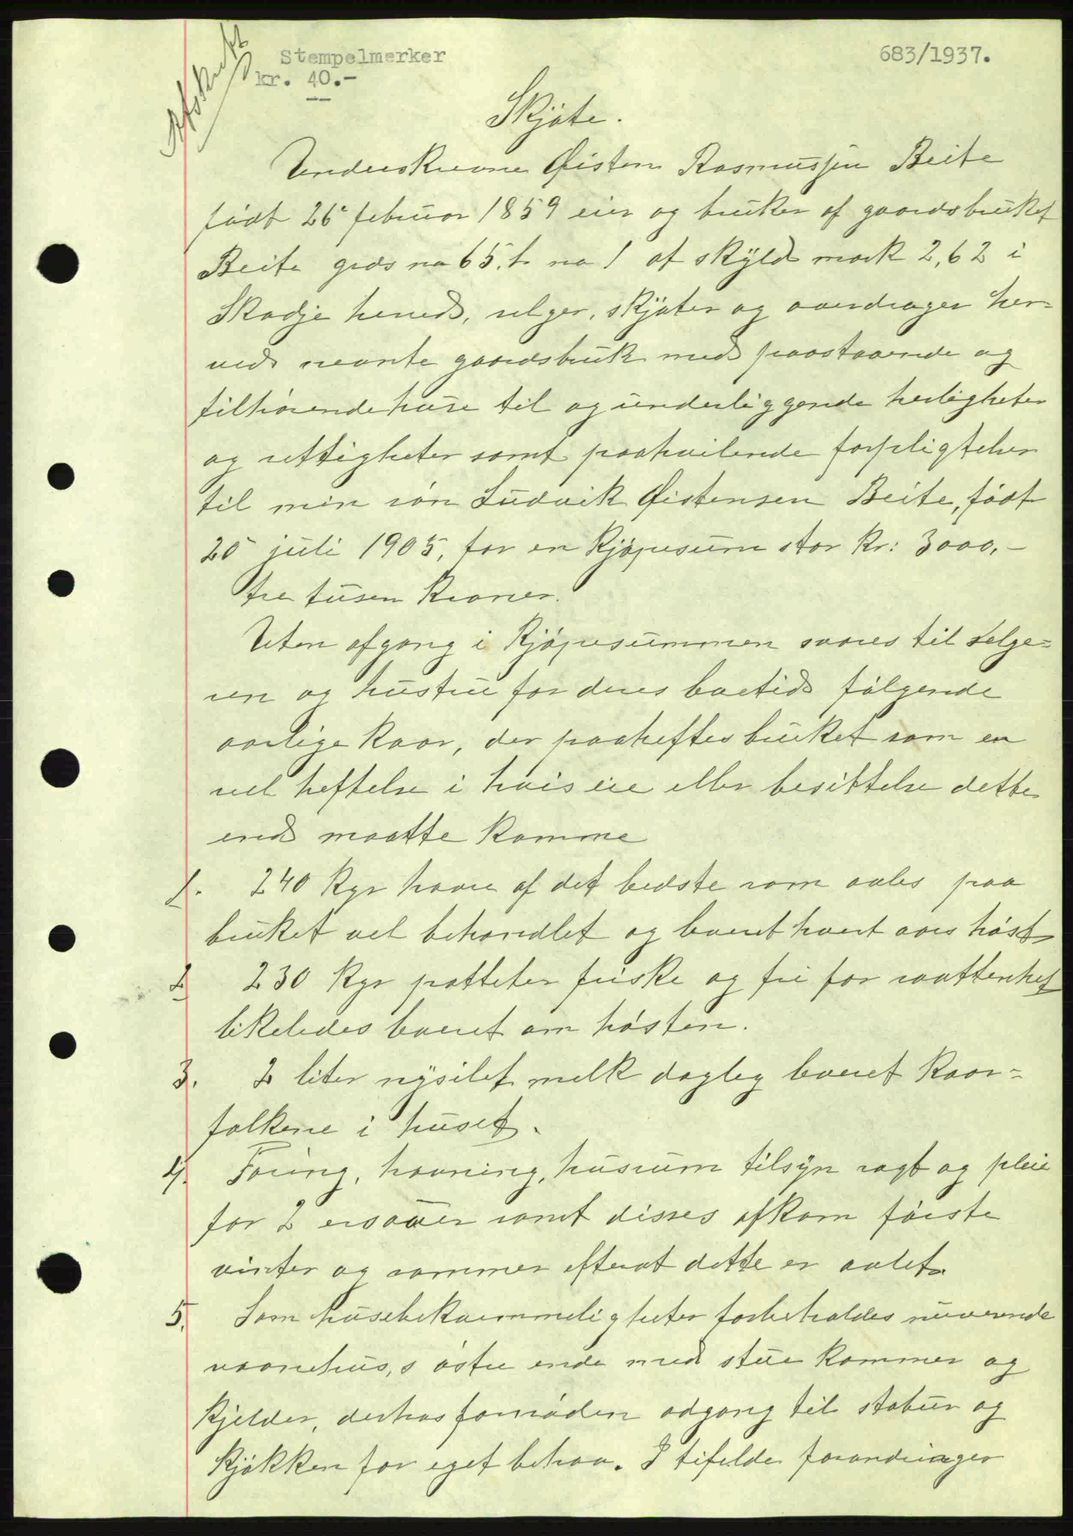 Afskrift
Stempelmerker
kr. 40.-
683/1937.
Skjøte.
Underskrevne Øisten Rasmussen Beite
født 26' februar 1859 eier og bruker af gaardsbruket
Beite grds no 65, b. no 1 af skyld mark 2,62 i
Skodje hered, selger, skjøter og overdrager her=
ved nevnte gaardsbruk med paastaaende og
tilhørende huse til og underliggende herligheter
og rettigheter samt paahvilende forpligtelser
til min søn Ludvik Øistensen Beite, født
20 juli 1905, for en kjøpesum stor kr: 3000,-
tre tusen kroner.
Uten afgang i kjøpesummen svares til selge=
ren og hustru for deres levetid følgende
aarlige kaar, der paaheftes bruket som en
rel heftelse i hvis eie eller besittelse dette
end maatte komme
1. 240 kgr havre af det bedste som avles paa
bruket vel behandlet og levert hvert aars høst
2 230 kgr potteter friske og fri for raattenhet
likeledes levert om høsten.
3. 2 liter nysilet melk dagleg levert kaar=
folkene i huset.
4. Foring, havning, husrum tilsyn ragt og pleie
for 2 ersauer samt disses afkom første
vinter og sommer efterat dette er avlet.
5. Som husebekvemmeligheter forbeholdes nuverende
vaanehus,s østre ende med stue kammer og
kjelder, derhos fornøden adgang til stabur og
kjøkken for eget behov. I tifelde forandringer